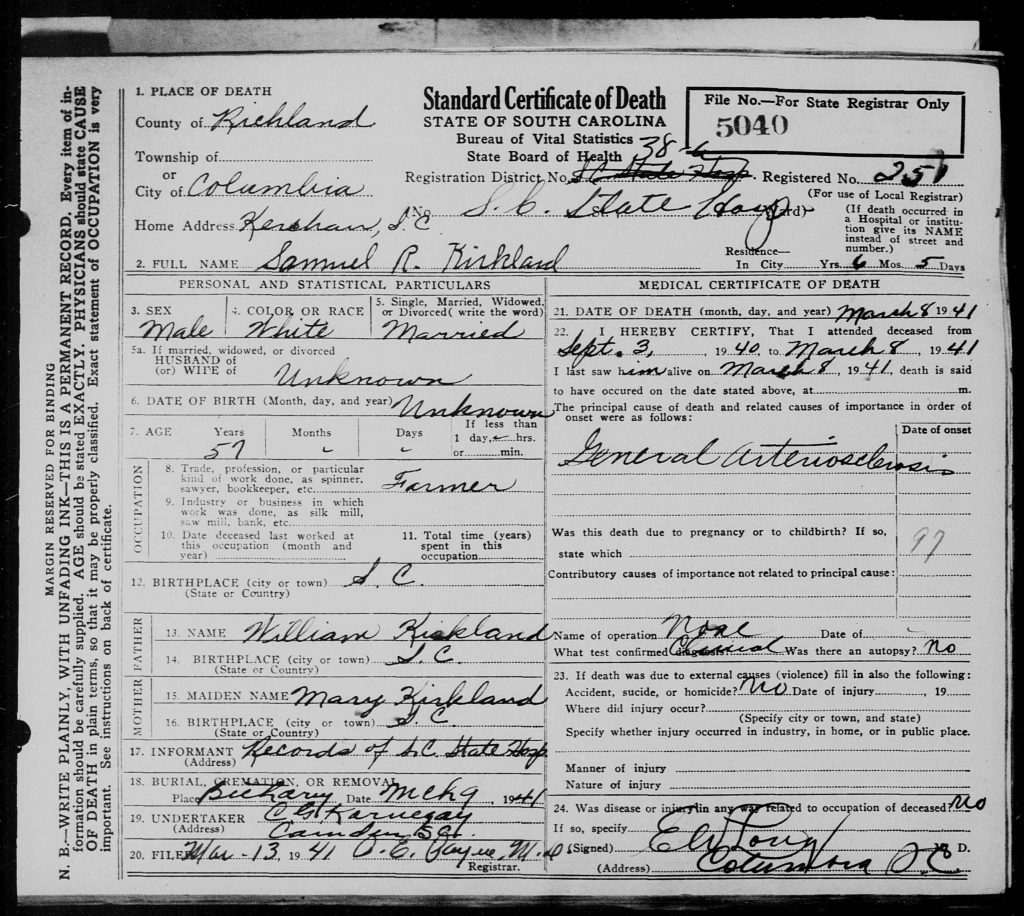 MARGIN RESERVED FOR BINDING
N. B.—WRITE PLAINLY, WITH UNFADING INK—THIS IS A PERMANENT RECORD. Every item of in-
formation should be carefully supplied. AGE should be stated EXACTLY. PHYSICIANS should state CAUSE
OF DEATH in plain terms, so that it may be properly classified. Exact statement of OCCUPATION is very
important. See instructions on back of certificate.
Standard Certificate of Death
STATE OF SOUTH CAROLINA
Bureau of Vital Statistics
State Board of Health
File No.—For State Registrar Only
5040
1. PLACE OF DEATH
County of Richland
Township of
or
City of Columbia
Home Address Kershaw, S.C.
Registration District No. 38-a S C State Hosp. Registered No. 251
(For use of Local Registrar)
(No. S. C. State Hosp ard)
(If death occurred in
a Hospital or institu-
tion give its NAME
instead of street and
number.)
Residence—
In City Yrs. 6 Mos. 5 Days
2. FULL NAME Samuel R. Kirkland
PERSONAL AND STATISTICAL PARTICULARS
3. SEX Male
4. COLOR OR RACE White
5. Single, Married, Widowed,
or Divorced (write the word)
Married
5a. If married, widowed, or divorced
HUSBAND of
(or) WIFE of Unknown
6. DATE OF BIRTH (Month, day, and year) Unknown
7. AGE Years 57 Months " Days "
If less than
1 day, hrs.
or min.
OCCUPATION
8. Trade, profession, or particular
kind of work done, as spinner,
sawyer, bookkeeper, etc. Farmer
9. Industry or business in which
work was done, as silk mill,
saw mill, bank, etc.
10. Date deceased last worked at
this occupation (month and
year)
11. Total time (years)
spent in this
occupation
12. BIRTHPLACE (city or town) S. C.
(State or Country)
FATHER
13. NAME William Kirkland
14. BIRTHPLACE (city or town) S.C.
(State or Country)
MOTHER
15. MAIDEN NAME Mary Kirkland
16. BIRTHPLACE (city or town) S.C.
(State or Country)
17. INFORMANT Records of S.C. State Hosp
(Address)
18. BURIAL, CREMATION, OR REMOVAL
Place Date Mch 9, 1941
19. UNDERTAKER C. G. Karnegay
(Address) Camden S.C.
20. FILED Mar-13, 1941 O. E. Payne, M.D.
Registrar.
MEDICAL CERTIFICATE OF DEATH
21. DATE OF DEATH (month, day, and year) March 8 1941
22. I HEREBY CERTIFY, That I attended deceased from
Sept. 3, 1940, to March 8, 1941
I last saw him alive on March 8, 1941, death is said
to have occured on the date stated above, at m.
The principal cause of death and related causes of importance in order of
onset were as follows:
Date of onset
General Arteriosclerosis
Was this death due to pregnancy or to childbirth? If so,
state which
97
Contributory causes of importance not related to principal cause:
Name of operation None Date of
What test confirmed diagnosis? Clinical Was there an autopsy? No
23. If death was due to external causes (violence) fill in also the following:
Accident, sucide, or homicide? No Date of injury , 19
Where did injury occur?
(Specify city or town, and state)
Specify whether injury occurred in industry, in home, or in public place.
Manner of injury
Nature of injury
24. Was disease or injury in any way related to occupation of deceased? No
If so, specify
(Signed) E W Long M. D.
(Address) Columbia S.C.